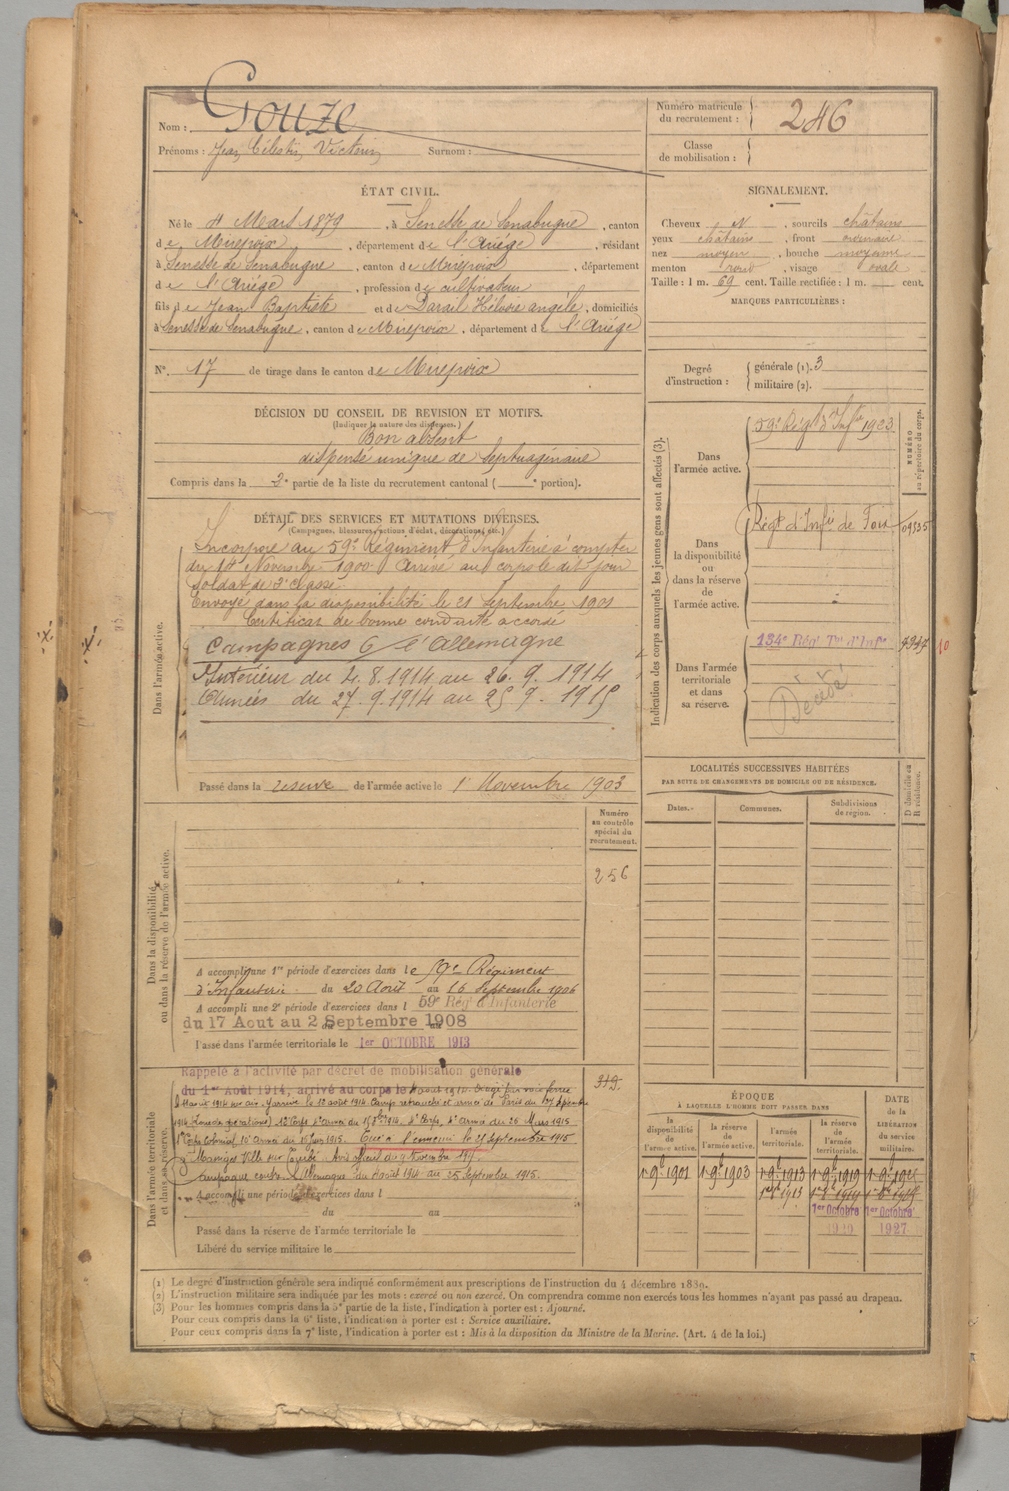 Nom : Gouze
Prénoms : Jean Célestin Victorin Surnom :
Numéro matricule du recrutement : 246
Classe de mobilisation :
ÉTAT CIVIL.
Né le 4 Mars 1879, à Senesse de Senabugue, canton
de Mirepoix, département de l'Ariége, résidant
à Senesse de Senabugue, canton de Mirepoix, département
de l'Ariége, profession de cultivateur
fils de Jean Baptiste et de Darail Héloïse angèle, domiciliés
à Senesse de Senabugue, canton de Mirepoix, département de l'Ariége
N°. 17 de tirage dans le canton de Mirepoix
SIGNALEMENT.
Cheveux N, sourcils châtains
yeux châtains, front ordinaire
nez moyen, bouche moyenne
menton rond, visage ovale
Taille : 1 m. 69 cent. Taille rectifiée : 1 m. cent.
MARQUES PARTICULIÈRES :
Degré d'instruction : générale (1). 3
militaire (2).
DÉCISION DU CONSEIL DE REVISION ET MOTIFS.
(Indiquer la nature des dispenses.)
Bon absent
dispensé unique de septuagénaire
Compris dans la 2e partie de la liste du recrutement cantonal ( e portion).
DÉTAIL DES SERVICES ET MUTATIONS DIVERSES.
(Campagnes, blessures, actions d'éclat, décorations, etc.)
Dans l'armée active.
Incorporé au 59e Régiment d'Infanterie à compter
du 14 Novembre 1900. Arrivé au corps le dit jour
soldat de 2e classe
Envoyé dans la disponibilité le 21 Septembre 1901
Certificat de bonne conduite accordé
Campagnes C/ l'Allemagne
Intérieur du 4.8.1914 au 26.9.1914
Armées du 27.9.1914 au 25.9.1915
Passé dans la réserve de l'armée active le 1 Novembre 1903
Indication des corps auxquels les jeunes gens sont affectés (3).
NUMÉRO au répertoire du corps.
Dans l'armée active.
59e Régt d'Infie 1923
Dans la disponibilité ou dans la réserve de l'armée active.
Régt d'Infie de Foix 09335
Dans l'armée territoriale et dans sa réserve.
134e Régt Tal d'Infie 10
Décédé
LOCALITÉS SUCCESSIVES HABITÉES
PAR SUITE DE CHANGEMENTS DE DOMICILE OU DE RÉSIDENCE.
Dates. Communes. Subdivisions de région. D domicile ou R résidence.
Dans la disponibilité ou dans la réserve de l'armée active.
Numéro au contrôle spécial du recrutement.
256
A accompli une 1re période d'exercices dans le 59e Régiment
d'Infanterie du 20 Août au 16 Septembre 1906
A accompli une 2e période d'exercices dans l 59e Rég d'Infanterie
du 17 Aout au 2 Septembre 1908
Passé dans l'armée territoriale le 1er OCTOBRE 1913
Dans l'armée territoriale et dans sa réserve.
319
Rappelé à l'activité par décret de mobilisation générale
du 1er Août 1914, arrivé au corps le
Camp retranché et armée de Paris du
1914 (zone des opérations) 12e Corps 2e armée du 26 Mars 1915
1er Corps Colonial 10e Armée du 15 Juin 1915. Tué à l'ennemi le 25 septembre 1915
à Massiges Ville sur Tourbe. Avis officiel du 9 Novembre 1915
Campagne contre l'Allemagne du Août 1914 au 25 Septembre 1915.
A accompli une période d'exercices dans l
du au
Passé dans la réserve de l'armée territoriale le
Libéré du service militaire le
ÉPOQUE
À LAQUELLE L'HOMME DOIT PASSER DANS
DATE de la LIBÉRATION du service militaire.
la disponibilité de l'armée active. la réserve de l'armée active. l'armée territoriale. la réserve de l'armée territoriale.
1 9b 1901 1 9b 1903 1 9b 1913 1 9b 1919
1er Octobre 1er Octobre
1927
(1) Le degré d'instruction générale sera indiqué conformément aux prescriptions de l'instruction du 4 décembre 1889.
(2) L'instruction militaire sera indiquée par les mots : exercé ou non exercé. On comprendra comme non exercés tous les hommes n'ayant pas passé au drapeau.
(3) Pour les hommes compris dans la 5e partie de la liste, l'indication à porter est : Ajourné.
Pour ceux compris dans la 6e liste, l'indication à porter est : Service auxiliaire.
Pour ceux compris dans la 7e liste, l'indication à porter est : Mis à la disposition du Ministre de la Marine. (Art. 4 de la loi.)